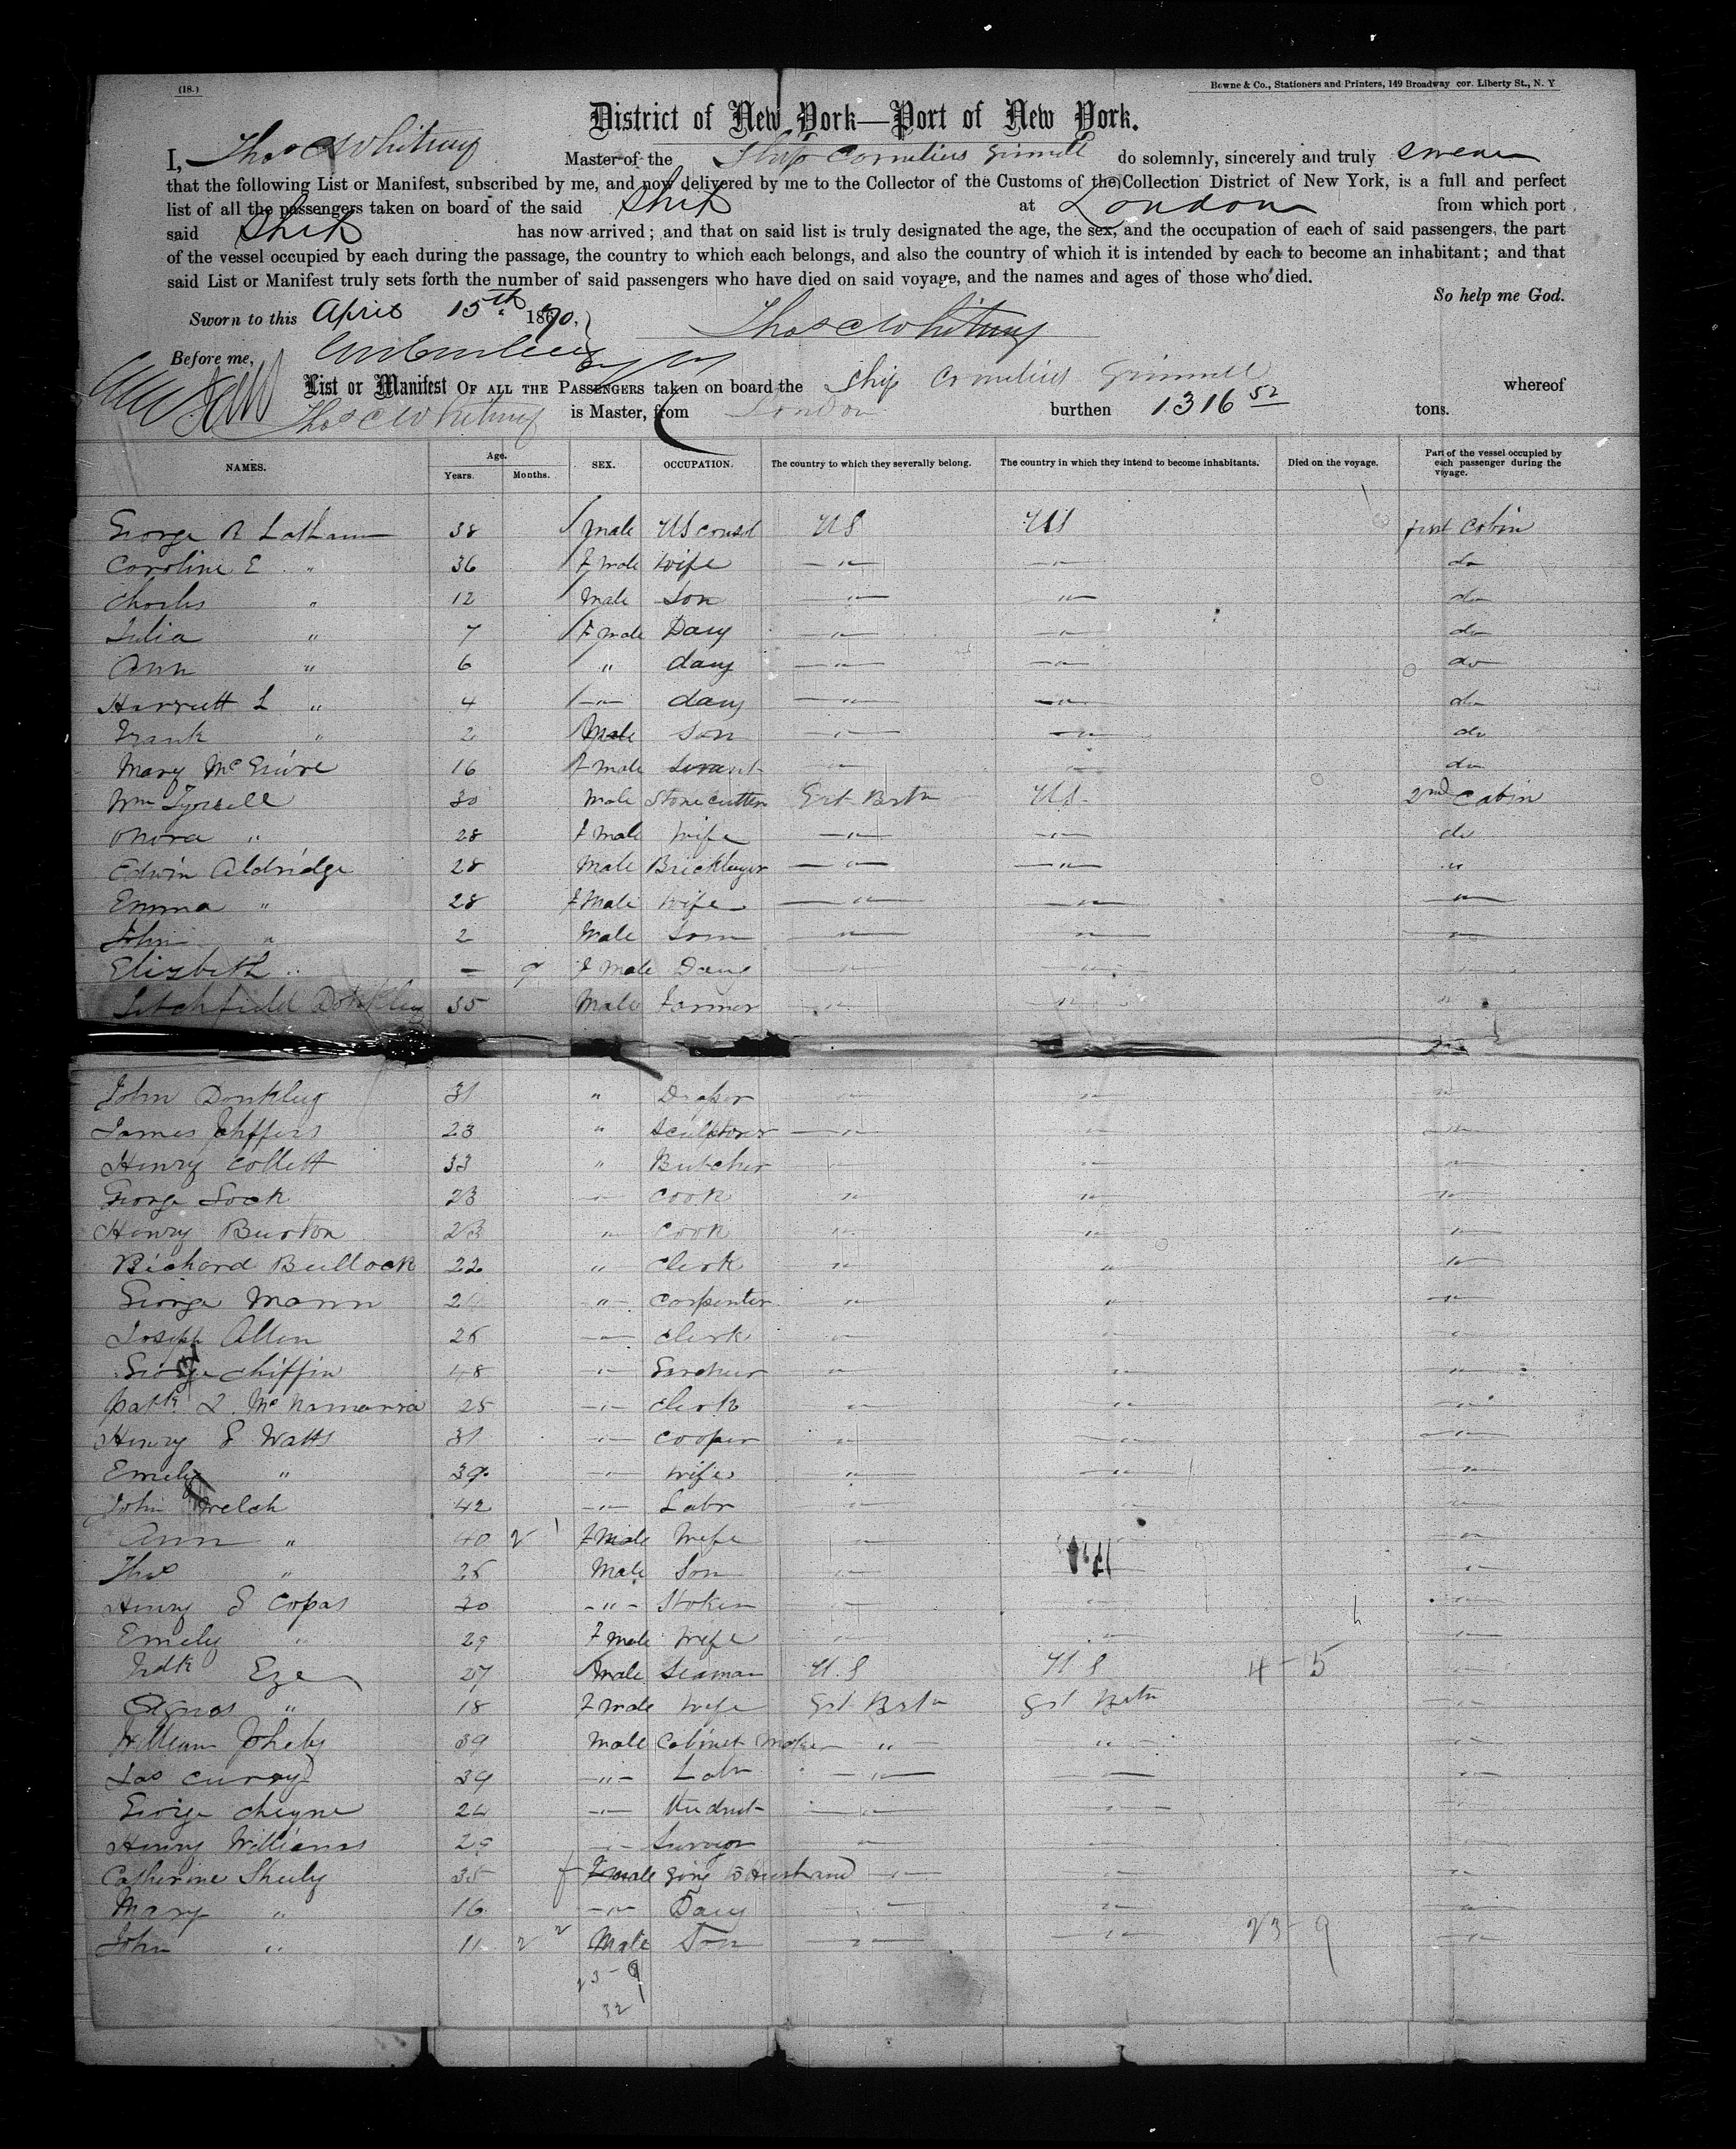 (18.)
Bowne & Co., Stationers and Printers, 149 Broadway cor. Liberty St., N. Y
District of New York—Port of New York.
I, Thos C Whitney Master of the Ship Cornelius Grinnell do solemnly, sincerely and truly swear
that the following List or Manifest, subscribed by me, and now delivered by me to the Collector of the Customs of the Collection District of New York, is a full and perfect
list of all the passengers taken on board of the said Ship at London from which port
said Ship has now arrived; and that on said list is truly designated the age, the sex, and the occupation of each of said passengers, the part
of the vessel occupied by each during the passage, the country to which each belongs, and also the country of which it is intended by each to become an inhabitant; and that
said List or Manifest truly sets forth the number of said passengers who have died on said voyage, and the names and ages of those who died.
So help me God.
Sworn to this April 15th 1870,
Thos C Whitney
Before me,
List or Manifest OF ALL THE PASSENGERS taken on board the Ship Cornelius Grinnell whereof
Thos C Whitney is Master, from London burthen 1316 52 tons.
NAMES. Age. Years. Months. SEX. OCCUPATION. The country to which they severally belong. The country in which they intend to become inhabitants. Died on the voyage. Part of the vessel occupied by each passenger during the voyage.
George R Latham 38 male US Consul US US first Cabin
Caroline E " 36 Fmale Wife " " do
Charles " 12 Male Son " " do
Julia " 7 Fmale Daug " " do
Ann " 6 " daug " " do
Harriett L " 4 " daug " " do
Frank " 2 Male Son " " do
Mary McGuire 16 Fmale Servant " " do
Wm 30 Male Stone cutter Grt Brtn US 2nd Cabin
" 28 Fmale Wife " " do
Edwin Aldridge 28 Male Bricklayer " " "
Emma " 28 FMale Wife " " "
John " 2 Male Son " " "
Elizbeth " – 9 Fmale Daug " " "
Litchfield Donkley 35 Male Farmer " " "
John Donkley 31 " Draper " " "
James 23 " " " "
Henry Collett 33 " Butcher " " "
George Lock 23 " Cook " " "
Henry Burton 23 " Cook " " "
Richard Bullock 22 " Clerk " " "
George Mann 24 " Carpenter " " "
Joseph Allen 26 " Clerk " " "
George Chiffin 48 " " " "
Patk L McNamarra 25 " Clerk " " "
Henry S Watts 31 " Cooper " " "
Emely " 39 " Wife " " "
John Welch 42 " Labr " " "
Ann " 40 Fmale Wife " "
Thos " 26 Male Son " "
Henry S Copas 30 " Stoker " " "
Emely " 29 Fmale Wife " " "
Fredk Eze 27 Male Seaman U.S US 4 - 5 "
Agnes " 18 Fmale Wife Grt Brtn Grt Brtn "
William 39 Male Cabinet Maker " " "
Jas Curry 39 " Labr " "
George Cheyne 24 " Student " " "
Henry Williams 29 " " " "
Catherine Sheely 35 Fmale going to Husband " " "
Mary " 16 " Daug " " "
John " 11 Male Son " " 23 - 9 "
23 - 9
32